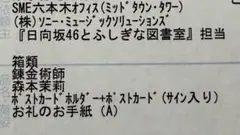 SME六本木オフィス(ミッドタウン・タワー)
(株)ソニー・ミュージックソリューションズ
『日向坂46とふしぎな図書室』担当
箱類
錬金術師
森本茉莉
ポストカードホルダー+ポストカード(サイン入り)
お礼のお手紙(A)